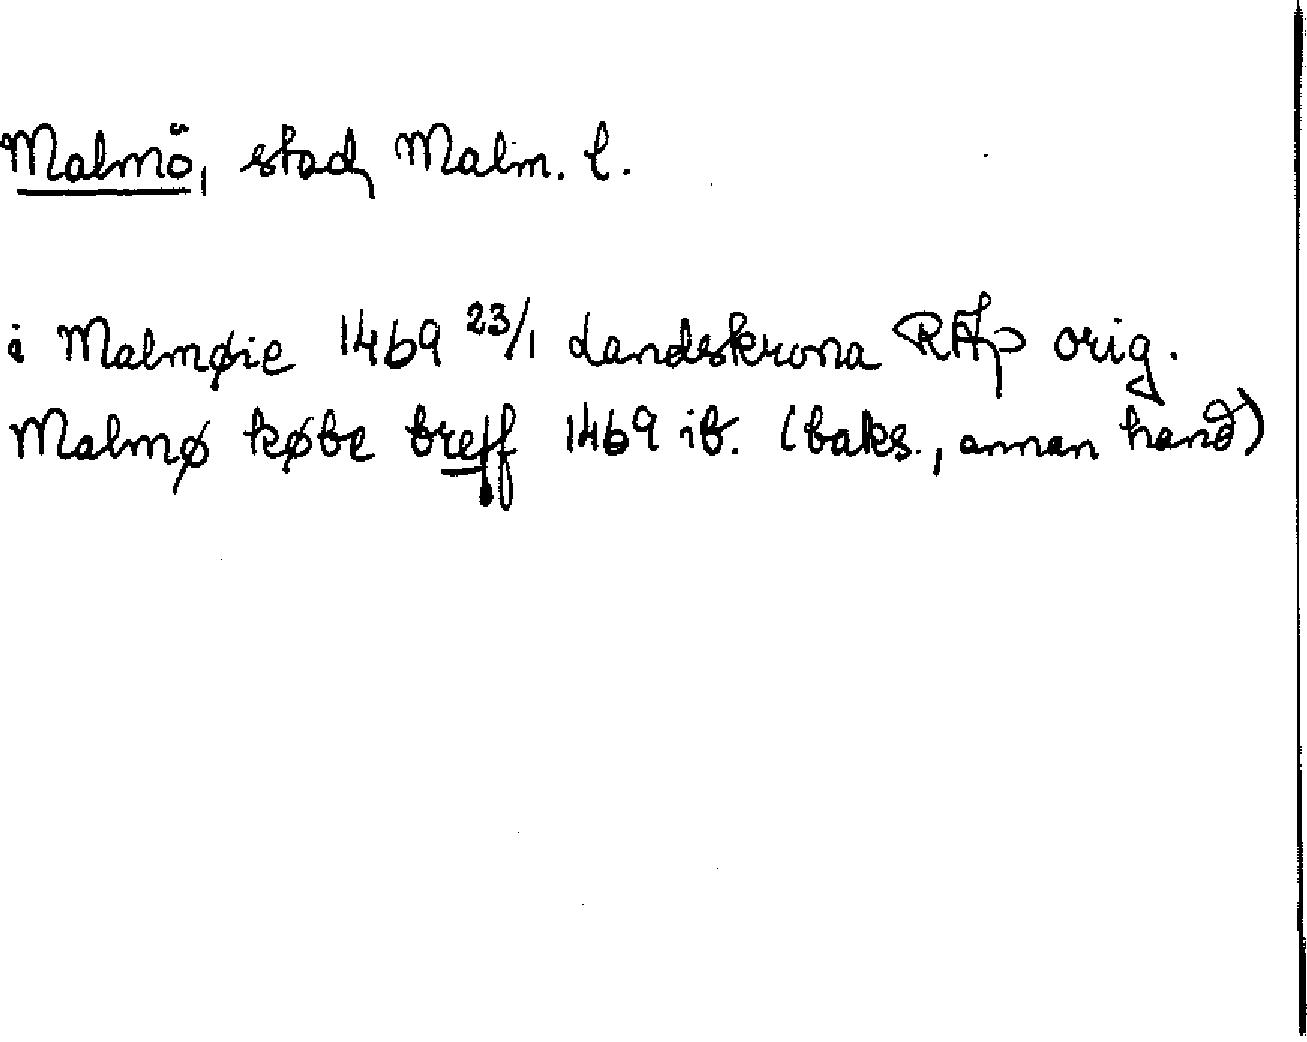 Malmö, stad, Malm. l.
i Malmøie 1469 23/1 Landskrona RAp orig.
Malmø købe breff 1469 ib. (baks., annan hand)